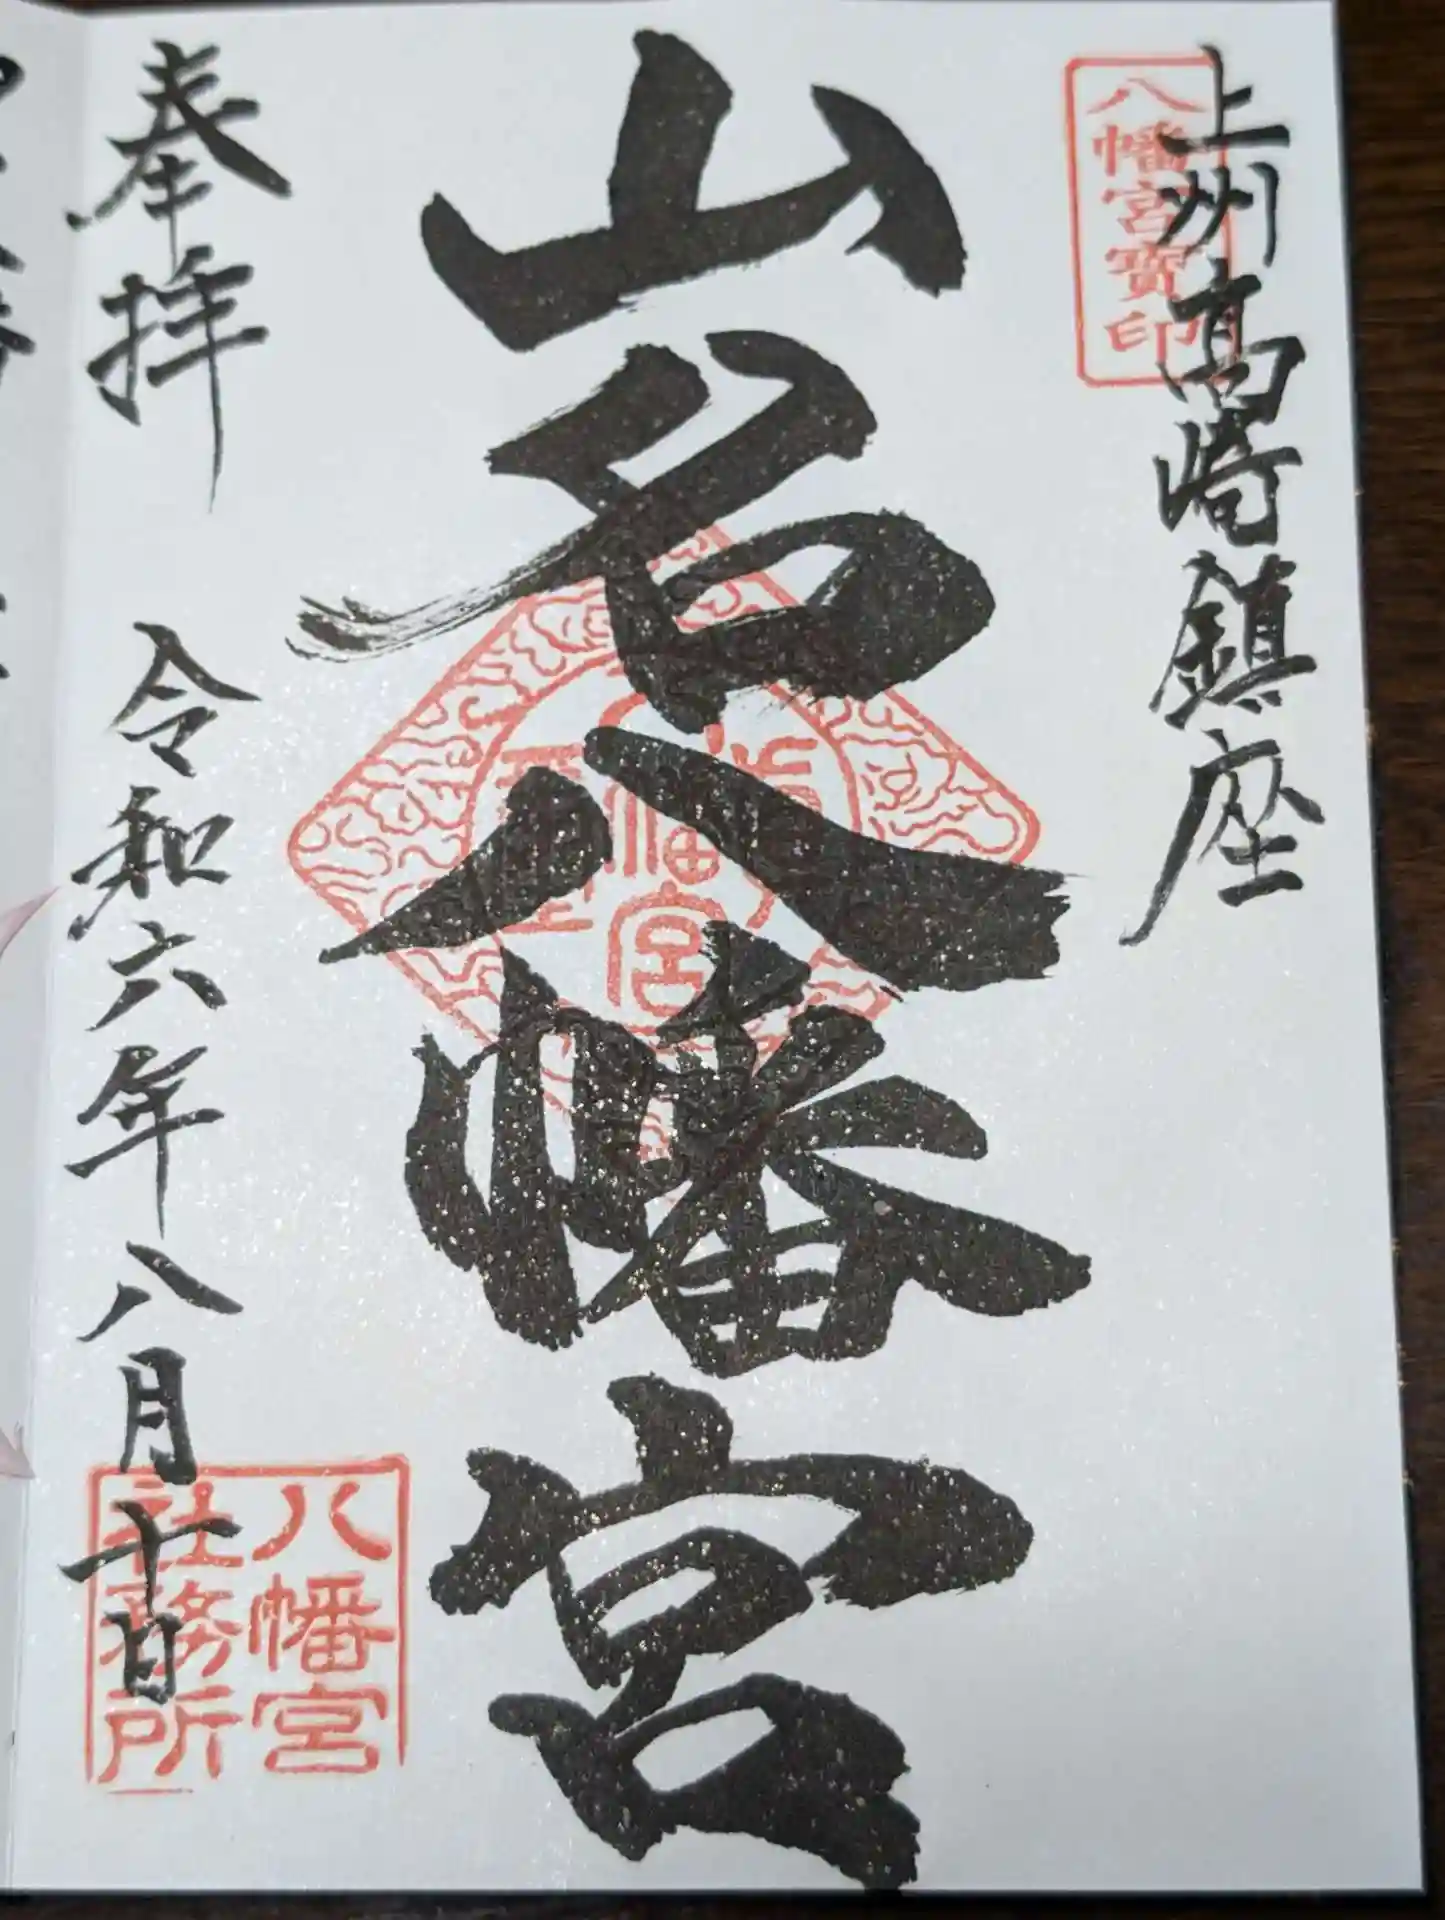 上州高崎鎮座
八幡宮寶印
山名八幡宮
奉拝
令和六年八月十日
八幡宮
社務所